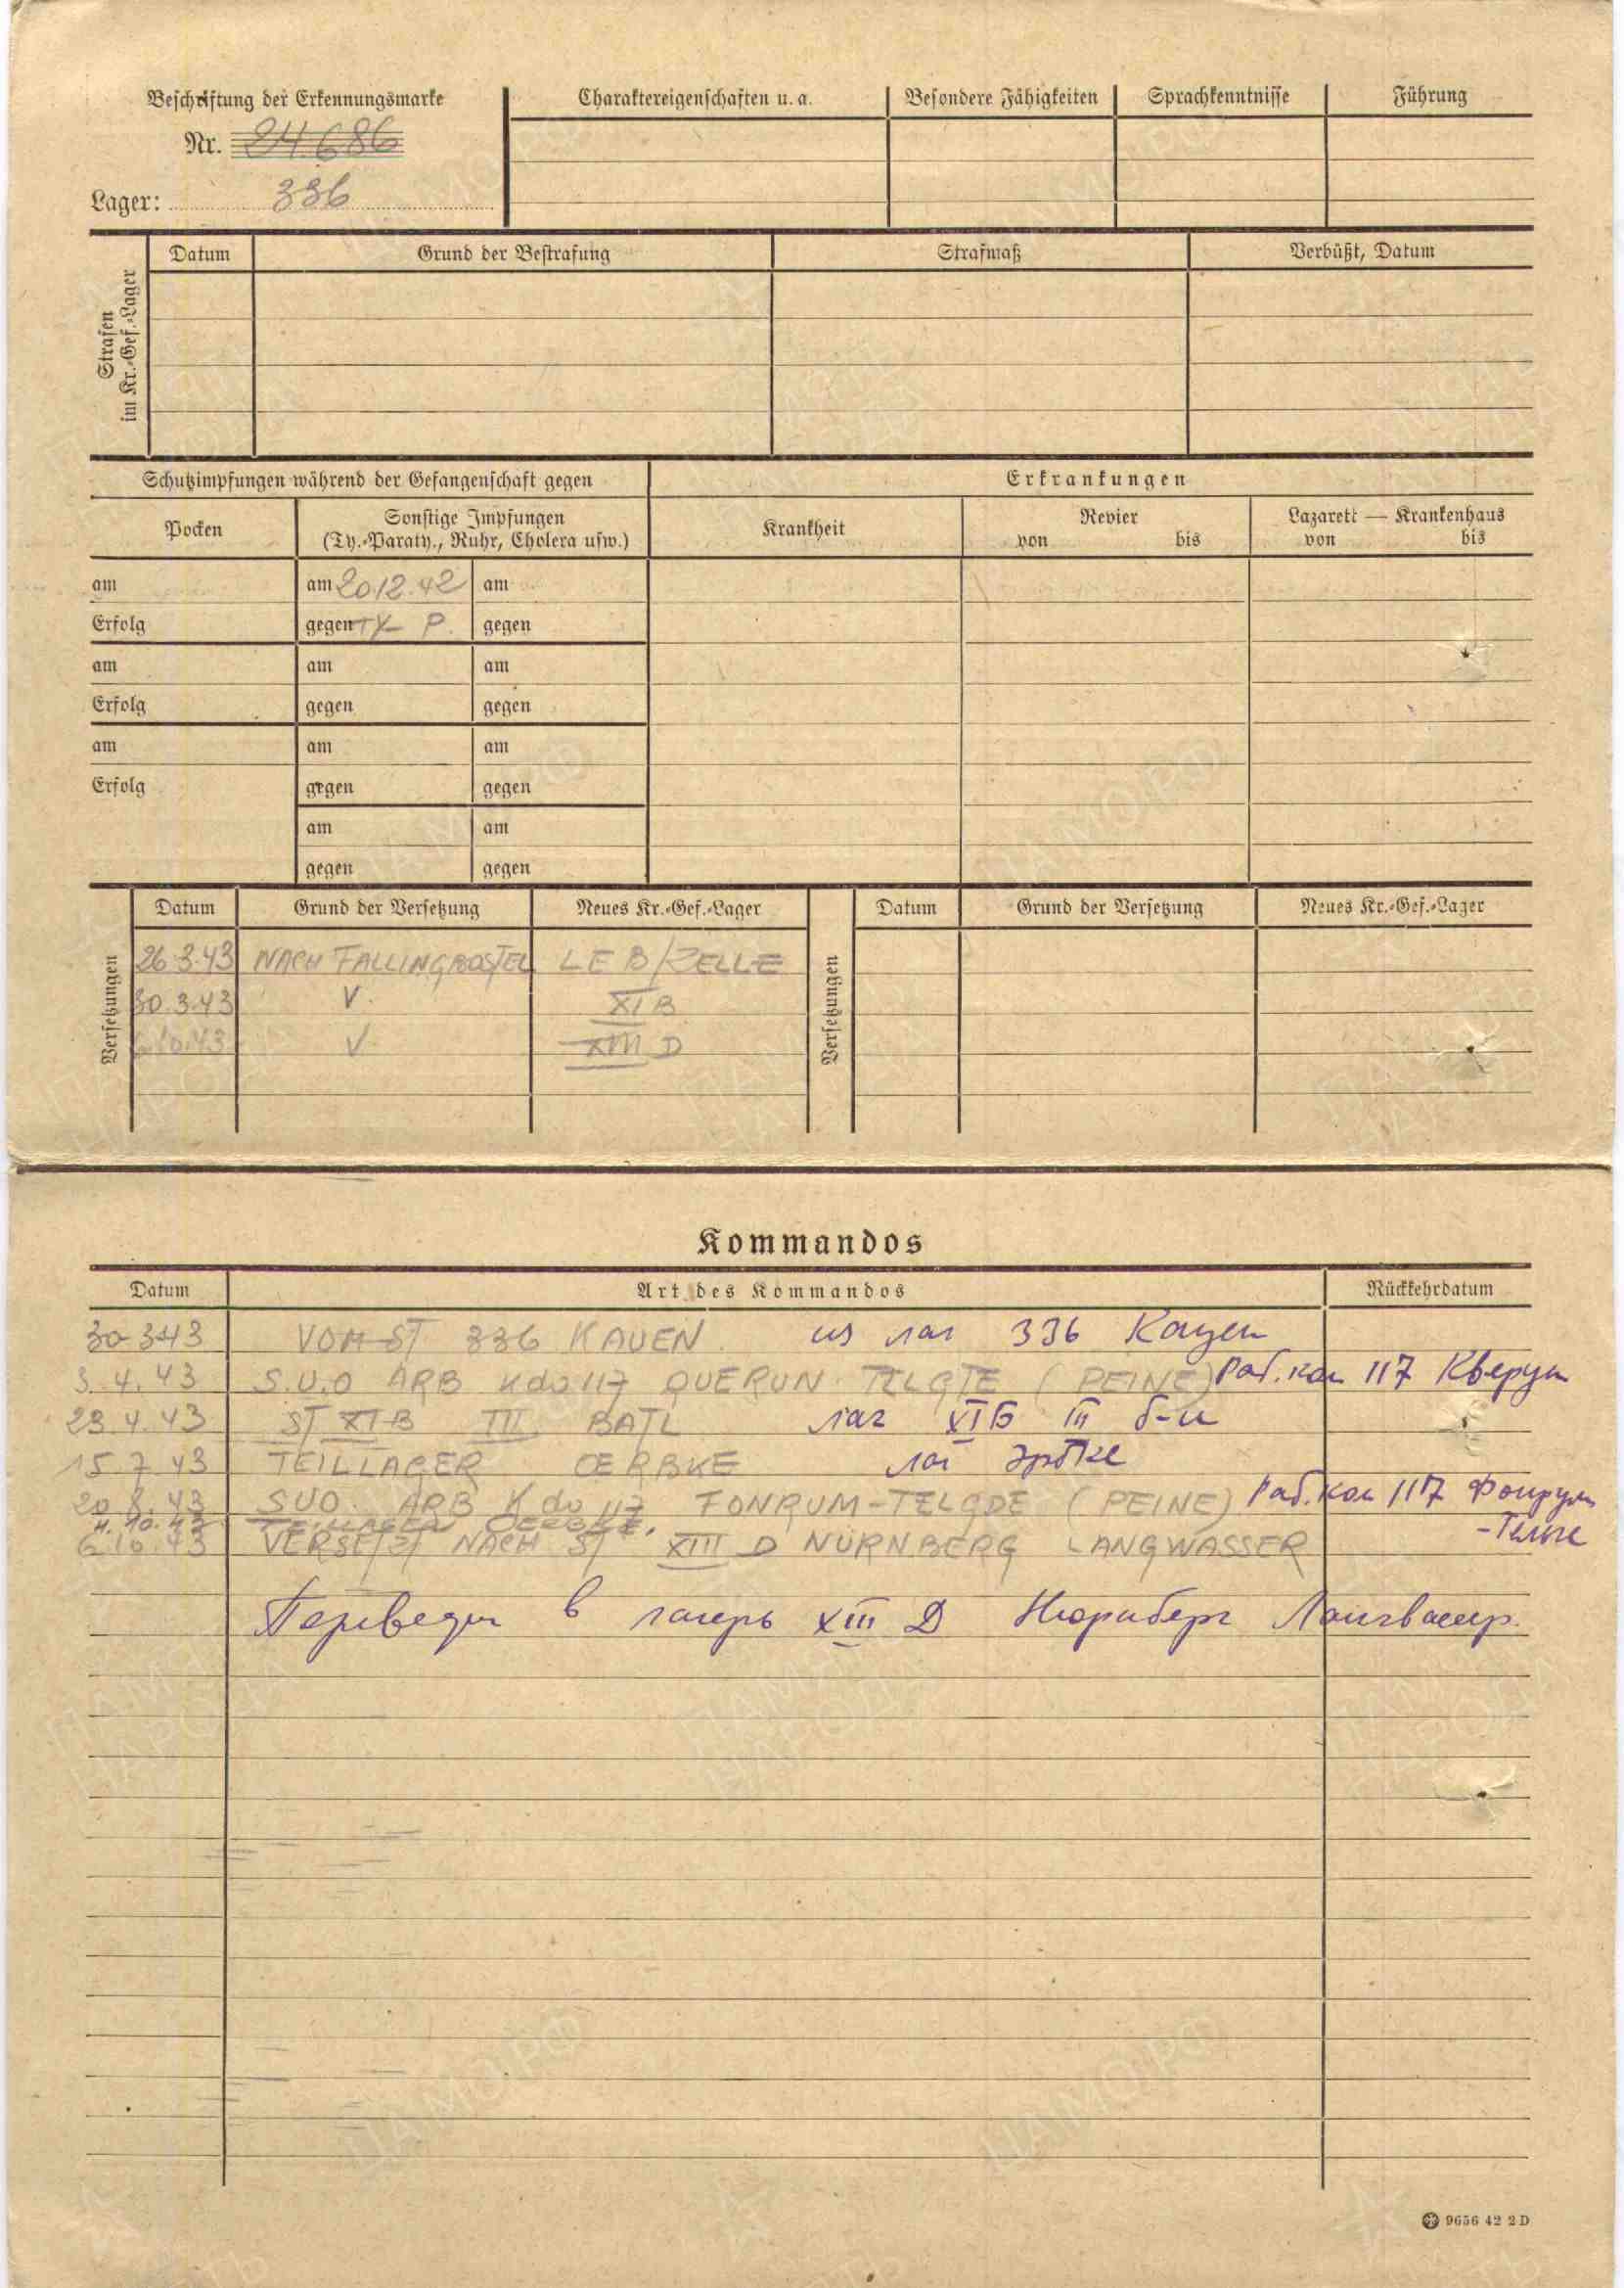 Beschriftung der Erkennungsmarke
Nr. 24686
Lager: 336
Charaktereigenschaften u. a. Besondere Fähigkeiten Sprachkenntnisse Führung
Strafen im Kr.-Gef.-Lager
Datum Grund der Bestrafung Strafmaß Verbüßt, Datum
Schutzimpfungen während der Gefangenschaft gegen Erkrankungen
Pocken Sonstige Impfungen (Ty.-Paraty., Ruhr, Cholera usw.) Krankheit Revier von bis Lazarett — Krankenhaus von bis
am am 20.12.42 am
Erfolg gegen TY- P. gegen
am am am
Erfolg gegen gegen
am am am
Erfolg gegen gegen
am am
gegen gegen
Versetzungen Datum Grund der Versetzung Neues Kr.-Gef.-Lager Versetzungen Datum Grund der Versetzung Neues Kr.-Gef.-Lager
26.3.43 NACH FALLINGBOSTEL LE B/ZELLE
30.3.43 V. XI B
6.10.43 V XIII D
Kommandos
Datum Art des Kommandos Rückkehrdatum
30.3.43 VOM ST 336 KAUEN из лаг 336 Кауен
3.4.43 S.U.O ARB Kdo 117 QUERUN TELGTE (PEINE) Раб. ком 117 Кверун
23.4.43 ST XI B III BATL лаг XI Б III б-н
15.7.43 TEILLAGER OERBKE лаг Эрбке
20.8.43 SUO. ARB Kdo 117 FONRUM-TELGDE (PEINE) Раб. ком 117 Фонрум
-Тельге
4.10.43 TEILLAGER OERBKE.
6.10.43 VERSETZT NACH ST XIII D NÜRNBERG LANGWASSER
Переведен в лагерь XIII Д Нюрнберг Лангвассер.
9656 42 2D